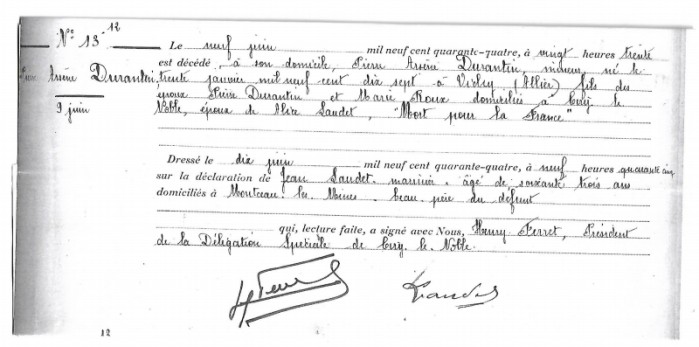 N° 13 12
Le neuf juin mil neuf cent quarante-quatre, à vingt heures trente
est décédé, à son domicile, Pierre Arsène Durantin, mineur, né le
Pierre Arsène Durantin, trente janvier mil neuf cent dix sept à Vichy (Allier) fils des
9 juin
époux Pierre Durantin et Marie Roux domiciliés à Ciry le
Noble, époux de Alice Laudet, "Mort pour la France"
Dressé le dix juin mil neuf cent quarante-quatre, à neuf heures quarante cinq
sur la déclaration de Jean Laudet, âgé de soixante trois ans
domiciliés à Montceau les Mines, beau père du défunt
qui, lecture faite, a signé avec Nous, Henry Ferret, Président
de la Délégation Spéciale de Ciry le Noble.
12